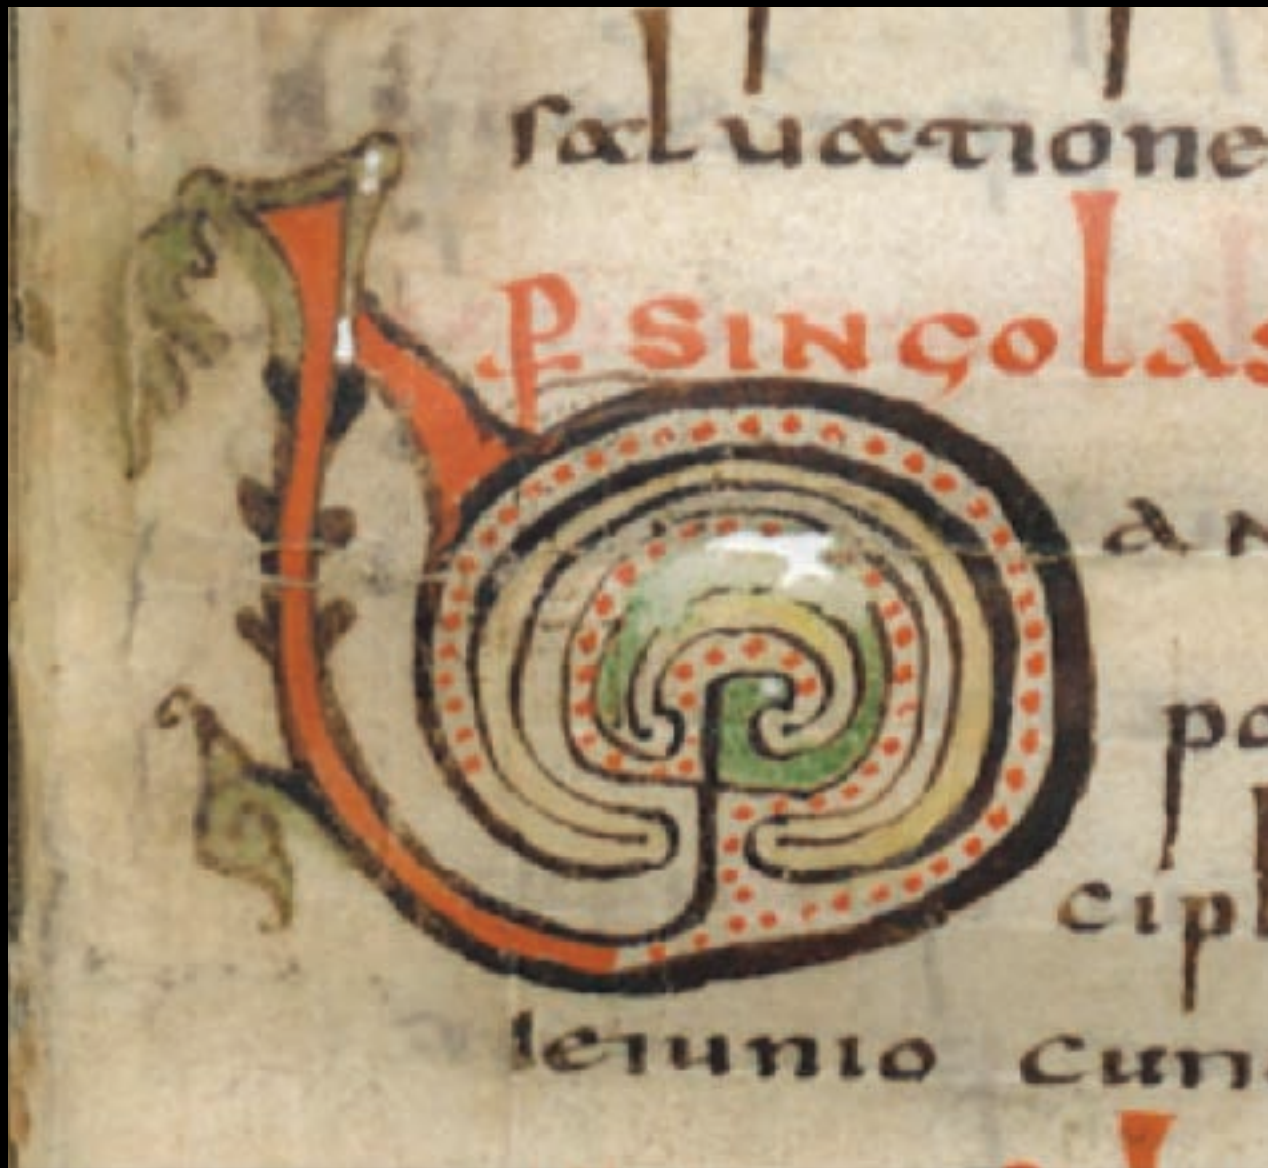 saluatione
ꝑ singolas
an
po
cipi
Ieiunio cun